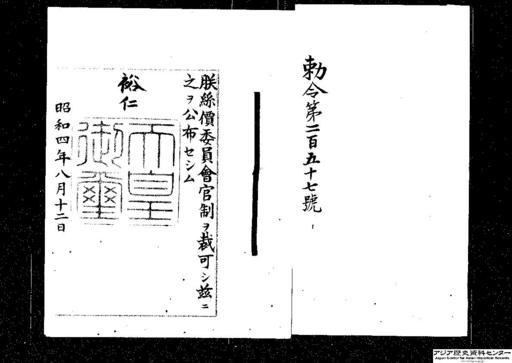 勅令第二百五十七號
朕絲價委員會官制ヲ裁可シ玆ニ
之ヲ公布セシム
裕仁
天皇
御璽
昭和四年八月十二日
アジア歴史資料センター
Japan Center for Asian Historical Records